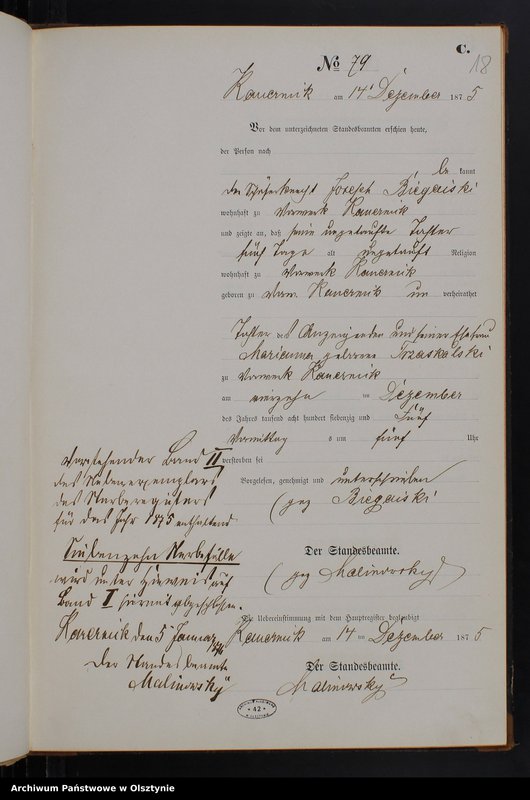 C.
18
No 79
Kauernik am 14t Dezember 1875
Vor dem unterzeichneten Standesbeamten erschien heute,
der Person nach
be kannt
der Schäferknecht Joseph Biegaiski
wohnhaft zu Vorwerk Kauernik
und zeigte an, daß seine ungetaufte Tochter
fünf Tage alt ungetauft Religion
wohnhaft zu Vorwerk Kauernik
geboren zu Vorw. Kauernik un verheirathet
Tochter des Anzeigenden und seiner Ehefrau
Marianna geborene Trzaskalski
zu Vorwerk Kauernik
am vierzehn ten Dezember
des Jahres tausend acht hundert siebenzig und fünf
Vormittag s um fünf Uhr
verstorben sei
Vorgelesen, genehmigt und unterschrieben
(gez Biegaiski
Der Standesbeamte.
(gez Malinowsky)
Die Uebereinstimmung mit dem Hauptregister beglaubigt
Kauernik am 14 ten Dezember 1875
Der Standesbeamte.
Malinowsky
Vorstehender Band II
des Nebenexemplars
des Sterberegisters
für das Jahr 1875 enthaltend
Siebenzehn Sterbefälle
wird unter Hinweis auf
Band I hiermit abgeschlossen.
Kauernik den 5 Januar 1876
Der Standesbeamte
Malinowsky
42
Archiwum Państwowe w Olsztynie